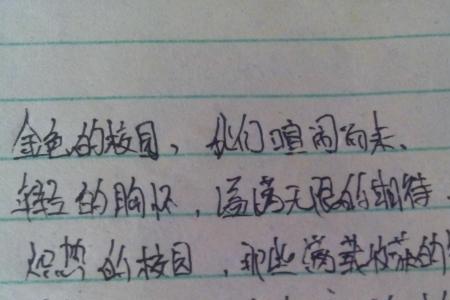 金色的校园、我们喧闹而来、
年轻的胸怀，溢满无限的期待、
炽热的校园，那些满载收获的